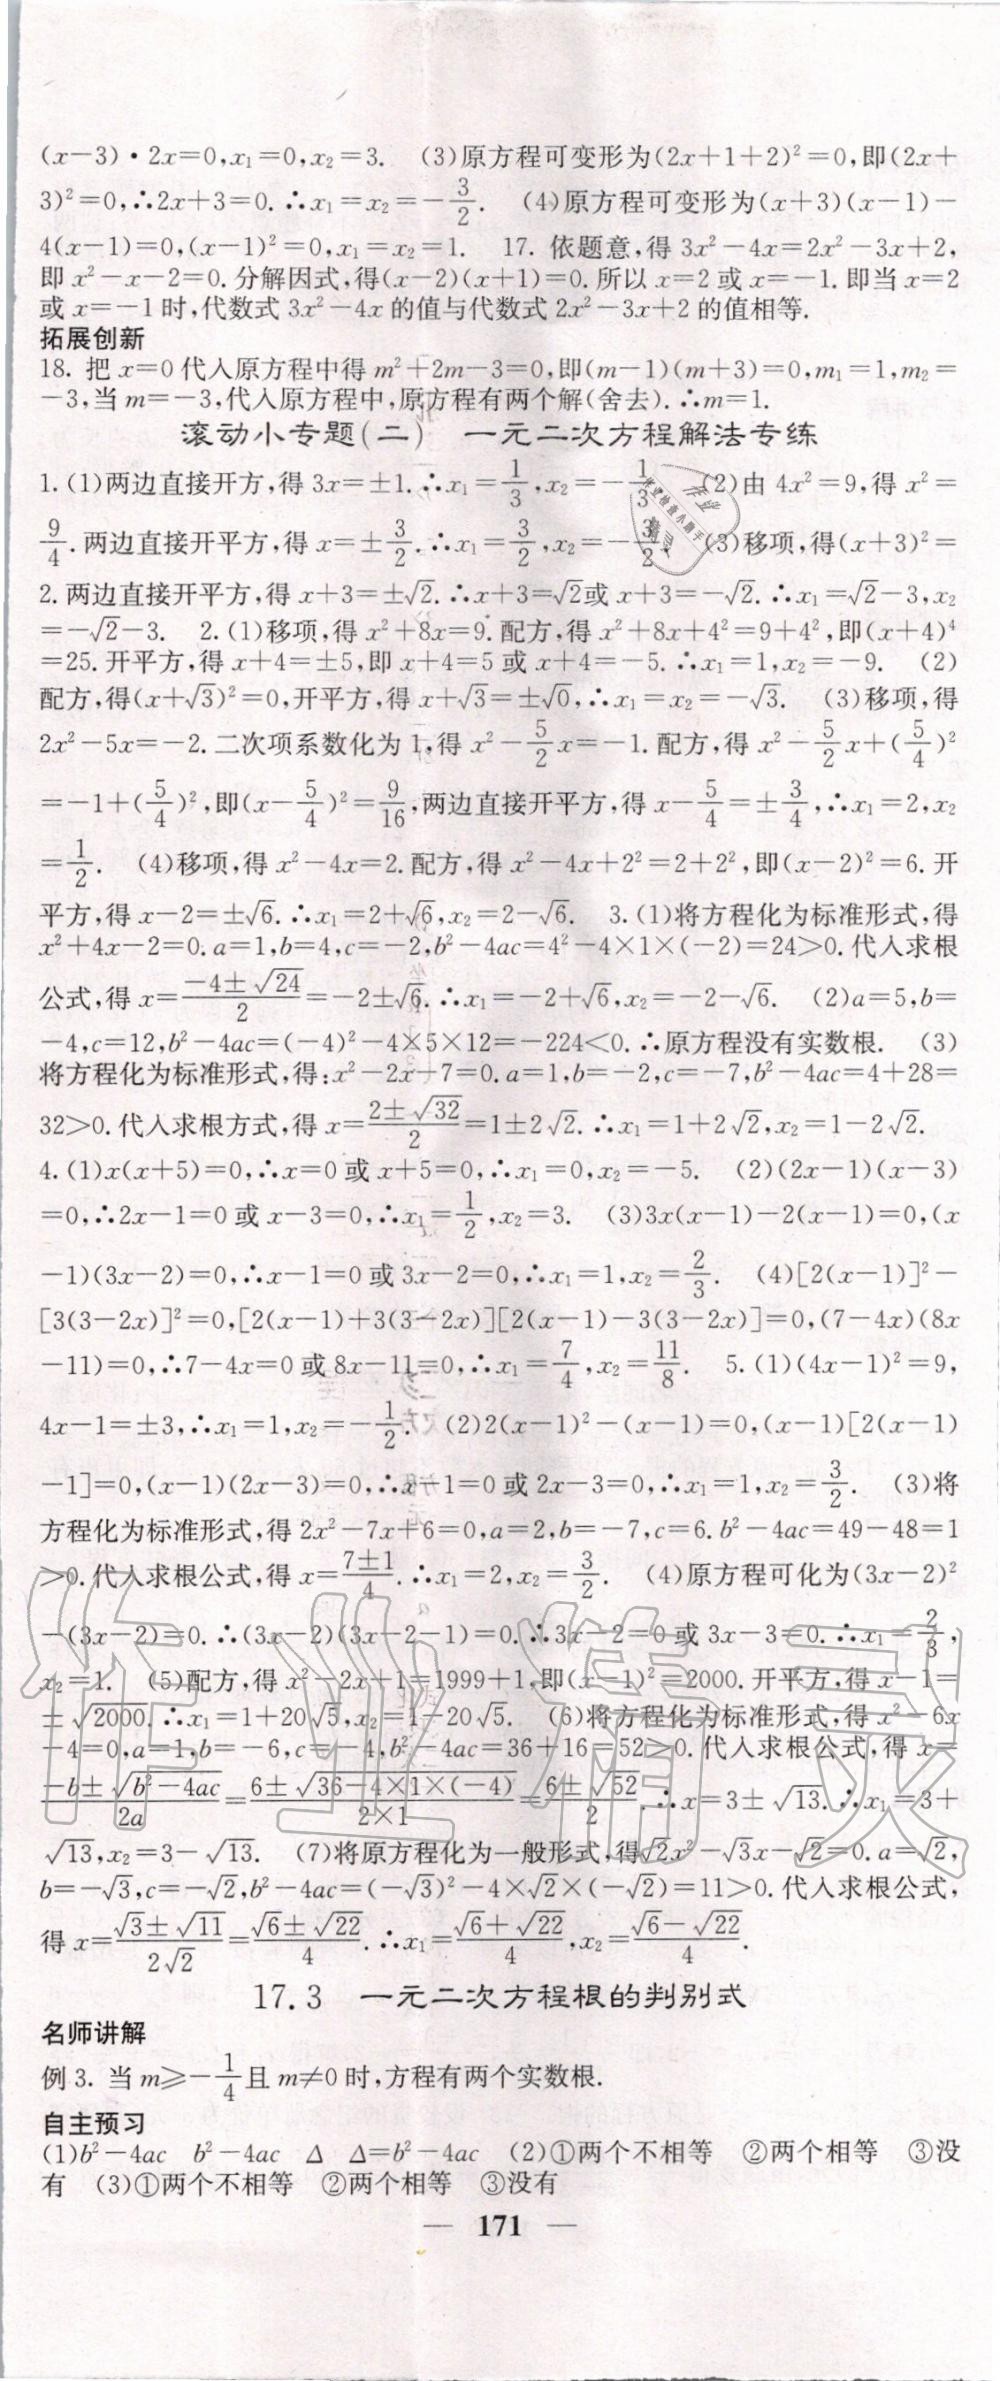 (x-3)·2x=0,x₁=0,x₂=3. (3)原方程可变形为(2x+1+2)²=0,即(2x+
3)²=0,∴2x+3=0.∴x₁=x₂=-3/2. (4)原方程可变形为(x+3)(x-1)-
4(x-1)=0,(x-1)²=0,x₁=x₂=1. 17. 依题意,得 3x²-4x=2x²-3x+2,
即 x²-x-2=0.分解因式,得(x-2)(x+1)=0.所以 x=2 或 x=-1.即当 x=2
或 x=-1 时,代数式 3x²-4x 的值与代数式 2x²-3x+2 的值相等.
拓展创新
18. 把 x=0 代入原方程中得 m²+2m-3=0,即(m-1)(m+3)=0,m₁=1,m₂=
-3,当 m=-3,代入原方程中,原方程有两个解(舍去).∴m=1.
滚动小专题(二) 一元二次方程解法专练
1.(1)两边直接开方,得 3x=±1.∴x₁=1/3,x₂=-1/3. (2)由 4x²=9,得 x²=
9/4.两边直接开平方,得 x=±3/2.∴x₁=3/2,x₂=-3/2. (3)移项,得(x+3)²=
2.两边直接开平方,得 x+3=±√2.∴x+3=√2或 x+3=-√2.∴x₁=√2-3,x₂
=-√2-3. 2.(1)移项,得 x²+8x=9.配方,得 x²+8x+4²=9+4²,即(x+4)⁴
=25.开平方,得 x+4=±5,即 x+4=5 或 x+4=-5.∴x₁=1,x₂=-9. (2)
配方,得(x+√3)²=0,开平方,得 x+√3=±√0,∴x₁=x₂=-√3. (3)移项,得
2x²-5x=-2.二次项系数化为 1,得 x²-5/2x=-1.配方,得 x²-5/2x+(5/4)²
=-1+(5/4)²,即(x-5/4)²=9/16,两边直接开平方,得 x-5/4=±3/4,∴x₁=2,x₂
=1/2. (4)移项,得 x²-4x=2.配方,得 x²-4x+2²=2+2²,即(x-2)²=6.开
平方,得 x-2=±√6.∴x₁=2+√6,x₂=2-√6. 3.(1)将方程化为标准形式,得
x²+4x-2=0.a=1,b=4,c=-2,b²-4ac=4²-4×1×(-2)=24>0.代入求根
公式,得 x=(-4±√24)/2=-2±√6.∴x₁=-2+√6,x₂=-2-√6. (2)a=5,b=
-4,c=12,b²-4ac=(-4)²-4×5×12=-224<0.∴原方程没有实数根. (3)
将方程化为标准形式,得:x²-2x-7=0.a=1,b=-2,c=-7,b²-4ac=4+28=
32>0.代入求根方式,得 x=(2±√32)/2=1±2√2.∴x₁=1+2√2,x₂=1-2√2.
4.(1)x(x+5)=0,∴x=0 或 x+5=0,∴x₁=0,x₂=-5. (2)(2x-1)(x-3)
=0,∴2x-1=0 或 x-3=0,∴x₁=1/2,x₂=3. (3)3x(x-1)-2(x-1)=0,(x
-1)(3x-2)=0,∴x-1=0 或 3x-2=0,∴x₁=1,x₂=2/3. (4)[2(x-1)]²-
[3(3-2x)]²=0,[2(x-1)+3(3-2x)][2(x-1)-3(3-2x)]=0,(7-4x)(8x
-11)=0,∴7-4x=0 或 8x-11=0,∴x₁=7/4,x₂=11/8. 5.(1)(4x-1)²=9,
4x-1=±3,∴x₁=1,x₂=-1/2. (2)2(x-1)²-(x-1)=0,(x-1)[2(x-1)
-1]=0,(x-1)(2x-3)=0,∴x-1=0 或 2x-3=0,∴x₁=1,x₂=3/2. (3)将
方程化为标准形式,得 2x²-7x+6=0,a=2,b=-7,c=6.b²-4ac=49-48=1
>0.代入求根公式,得 x=(7±1)/4.∴x₁=2,x₂=3/2. (4)原方程可化为(3x-2)²
-(3x-2)=0.∴(3x-2)(3x-2-1)=0.∴3x-2=0 或 3x-3=0.∴x₁=2/3,
x₂=1. (5)配方,得 x²-2x+1=1999+1,即(x-1)²=2000.开平方,得 x-1=
±√2000.∴x₁=1+20√5,x₂=1-20√5. (6)将方程化为标准形式,得 x²-6x
-4=0,a=1,b=-6,c=-4,b²-4ac=36+16=52>0.代入求根公式,得 x=
(-b±√(b²-4ac))/2a=(6±√(36-4×1×(-4)))/(2×1)=(6±√52)/2.∴x=3±√13.∴x₁=3+
√13,x₂=3-√13. (7)将原方程化为一般形式,得√2x²-√3x-√2=0.a=√2,
b=-√3,c=-√2,b²-4ac=(-√3)²-4×√2×(-√2)=11>0.代入求根公式,
得 x=(√3±√11)/2√2=(√6±√22)/4.∴x₁=(√6+√22)/4,x₂=(√6-√22)/4.
17.3 一元二次方程根的判别式
名师讲解
例 3. 当 m≥-1/4且 m≠0 时,方程有两个实数根.
自主预习
(1)b²-4ac b²-4ac Δ Δ=b²-4ac (2)①两个不相等 ②两个相等 ③没
有 (3)①两个不相等 ②两个相等 ③没有
— 171 —